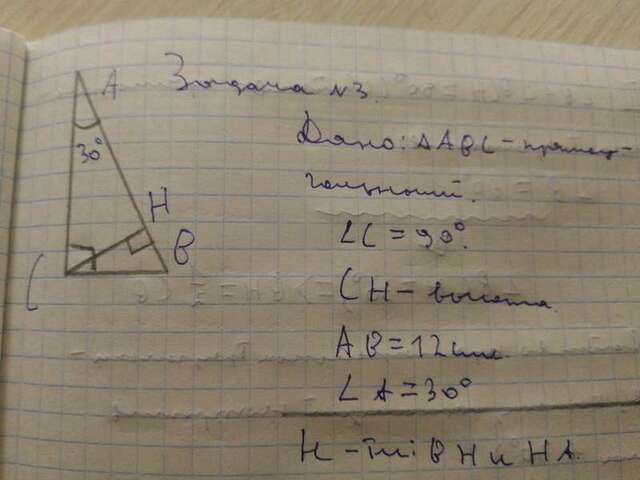 A
Задача №3.
30°
Дано: ΔABC - прямоу-
гольный.
H
B
C
∠C = 90°.
CH - высота
AB = 12 см.
∠A = 30°
Н-ти: BH и HA.